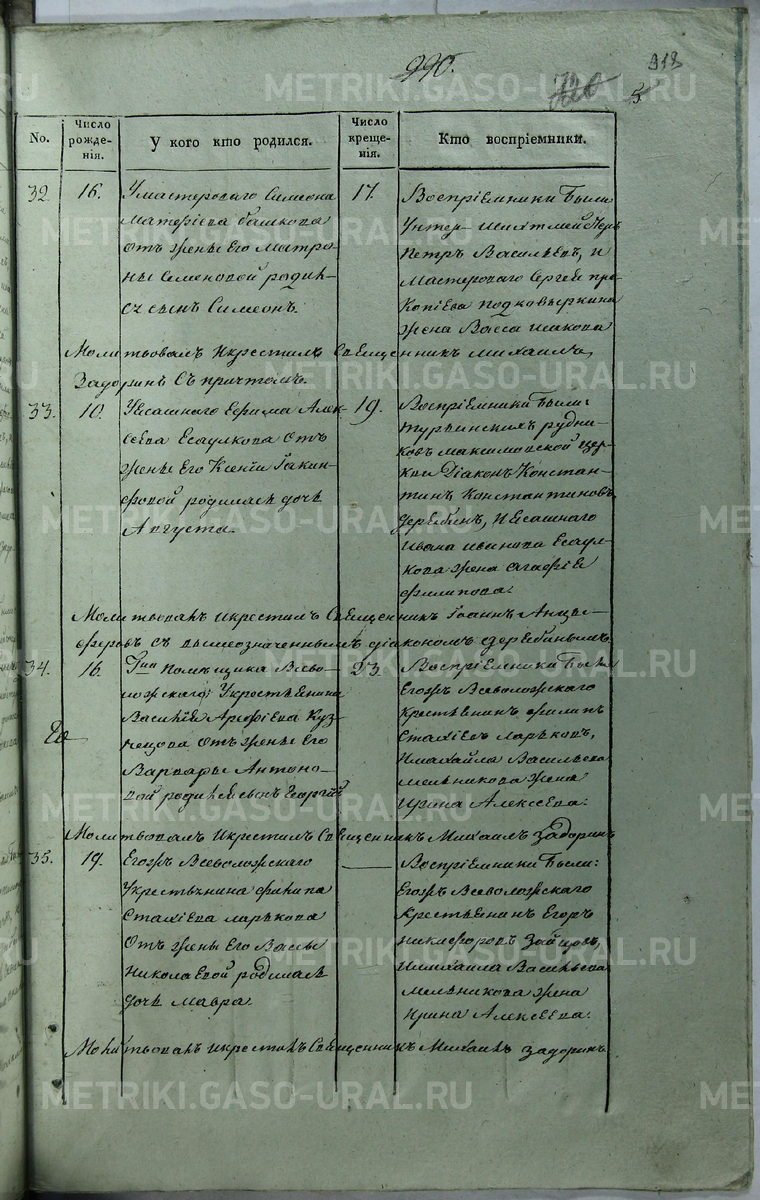 990.
720
918
5
No.
Число рожде-нія.
У кого кто родился.
Число креще-нія.
Кто воспріемники.
32.
16.
У мастероваго Симеона
Матфіева башкова
отъ жены Его Матро-
ны Семеновой родил-
ся сынъ Симеонъ.
17.
Воспріемники были
Унтер-шихтмейстеръ
Петръ Васильевъ, и
Мастероваго Сергея про-
копіева подковыркина
жена Васса
Молитвовалъ и крестилъ Священникъ Михаилъ
Задоринъ съ причтомъ.
33.
10.
Ефима Алек-
сѣева Есаулкова отъ
жены Его Ксеніи Іакин-
фовой родилась дочь
Августа
19.
Воспріемники были:
турьинскихъ рудни-
ковъ максимовской цер-
кви Діаконъ Констан-
тинъ Константиновъ
Дерябинъ, и
Ивана иванова Есаул-
кова жена Агафія
филипова.
Молитвовалъ и крестилъ Священникъ Іоаннъ Анцы-
феровъ съ вышеозначеннымъ діакономъ дерябинымъ
34.
16.
Гна помѣщика Всево-
ложскаго: У крестьянина
Василія Арефіева Куз-
нецова отъ жены Его
Варвары Антоно-
вой родился сынъ Георгій
23.
Воспріемники были
Егожъ Всеволожскаго
крестьянинъ филипъ
Стахіевъ ларьковъ,
и михайла Васильева
мельникова жена
Ирина Алексеева.
Молитвовалъ и крестилъ Священникъ Михаилъ Задоринъ
35.
19.
Егожъ Всеволожскаго
У крестьянина филипа
Стахіева ларькова
отъ жены Его Вассы
Николаевой родилась
дочь Мавра
Воспріемники были:
Егожъ Всеволожскаго
крестьянинъ Егоръ
никифоровъ зайцовъ,
и михаила Васильева
мельникова жена
Ирина Алексеева.
Молитвовалъ и крестилъ Священникъ Михаилъ Задоринъ
METRIKI.GASO-URAL.RU